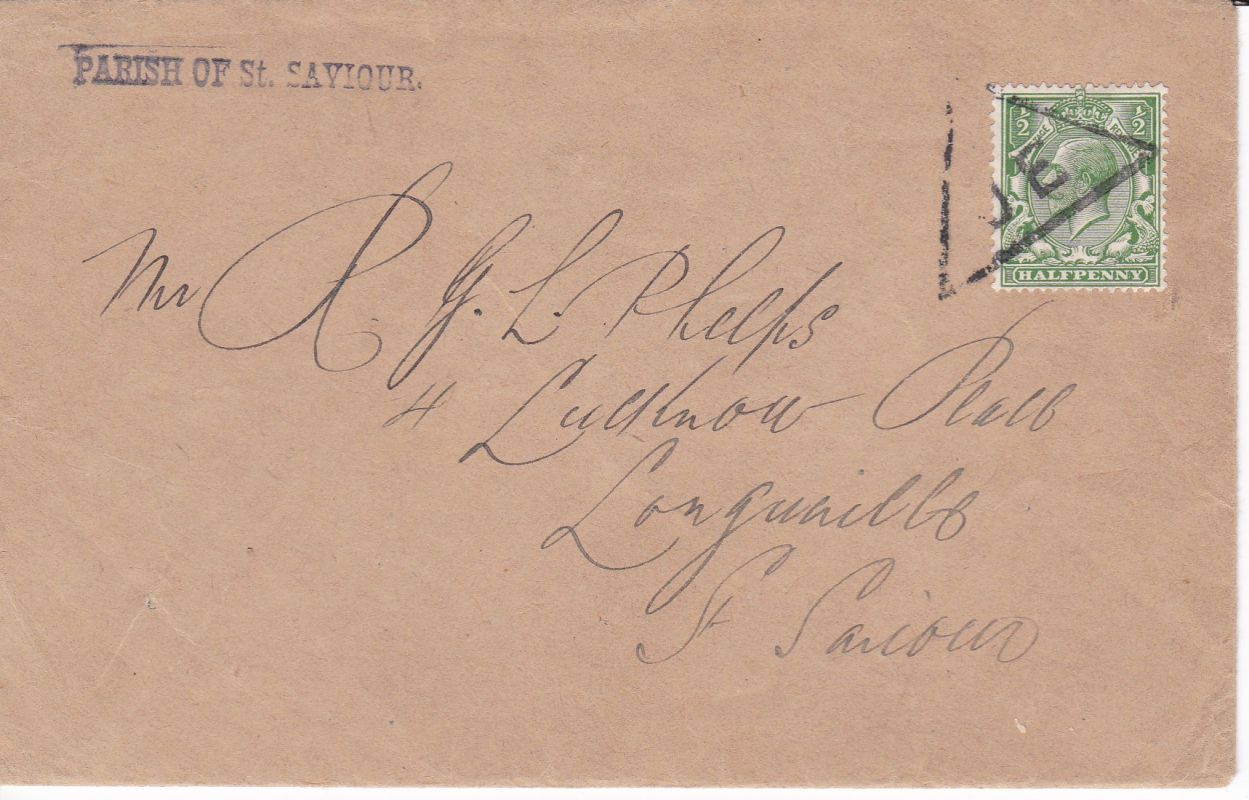 PARISH OF St. SAVIOUR.
½ POSTAGE REVENUE ½
JE
HALFPENNY
Mr R. G. L. Phelps
4 Lucknow Place
Longueville
St Saviour